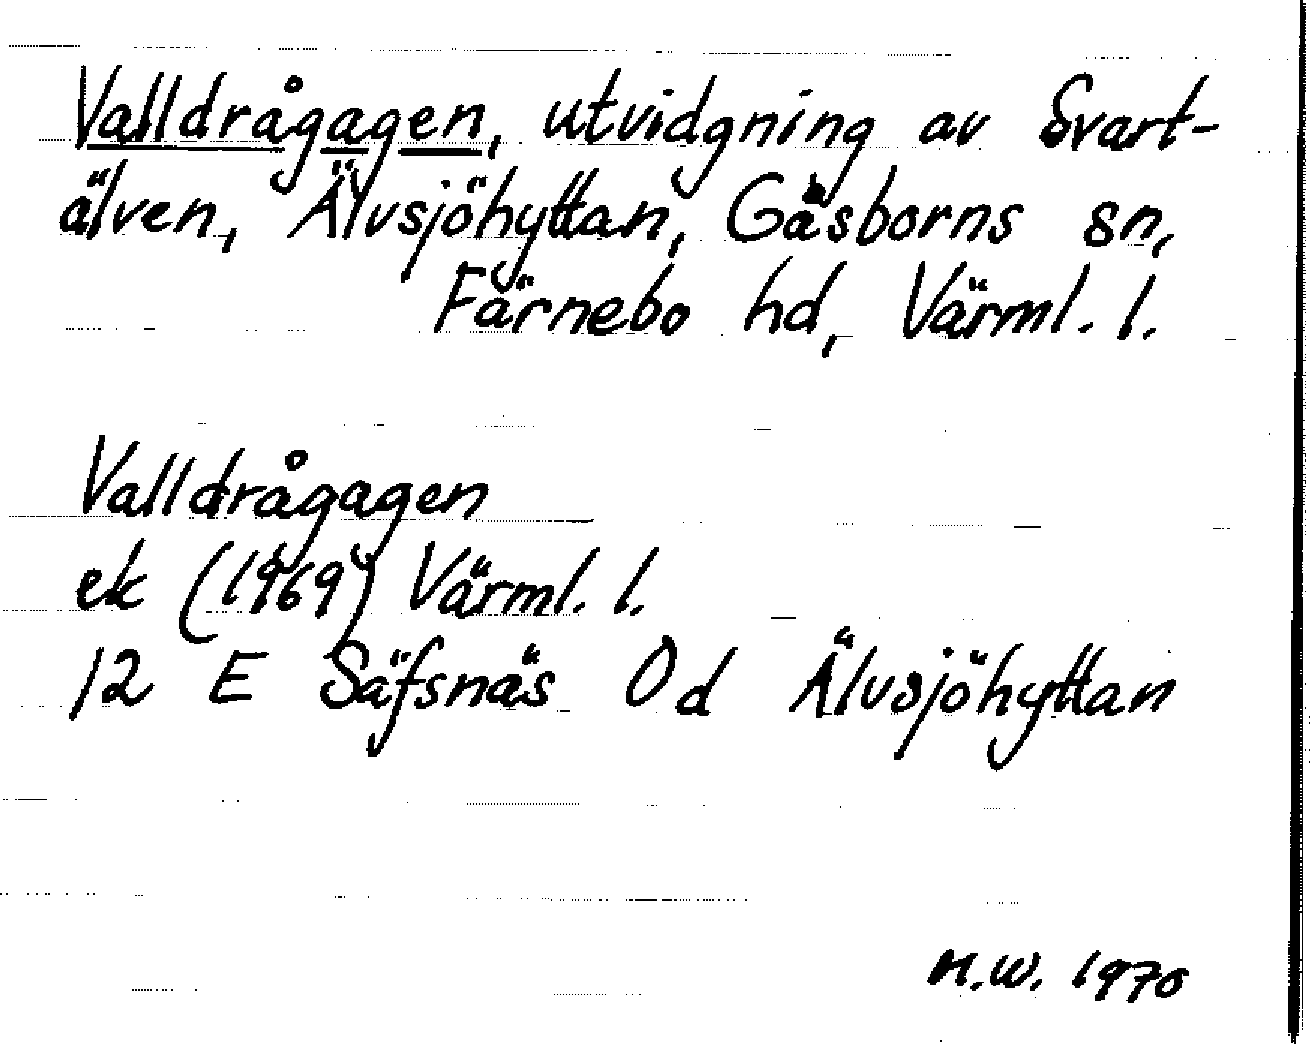 Valldrågagen, utvidgning av Svart-
älven, Älvsjöhyttan, Gåsborns sn,
Färnebo hd, Värml. l.
Valldrågagen
ek (1969) Värml. l.
12 E Säfsnäs 0d Älvsjöhyttan
M.W. 1970